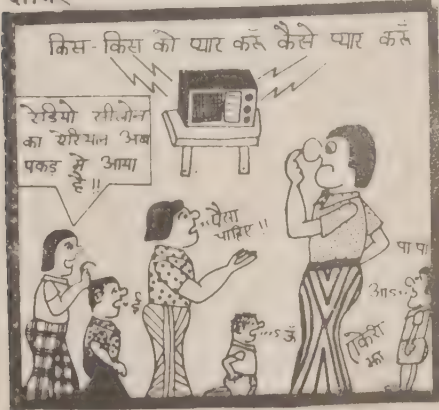 किस-किस को प्यार करूँ कैसे प्यार करूँ
रेडियो सीलोन
का एरियल अब
पकड़ में आया
है !!
..पैसा
चाहिए !!
पा पा
ई
...ऽ ऊँ
आऽ..ई